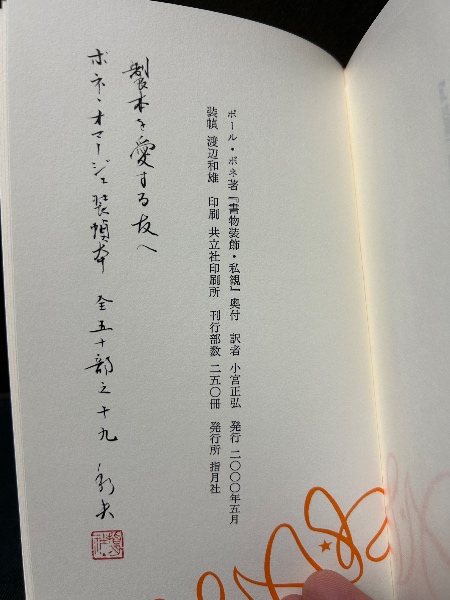 ポール・ボネ著『書物装飾・私観』奥付 訳者 小宮正弘 発行 二〇〇〇年五月
装幀 渡辺和雄 印刷 共立社印刷所 刊行部数 二五〇冊 発行所 指月社
製本を愛する友へ
ボネ・オマージュ装幀本 全五十部之十九